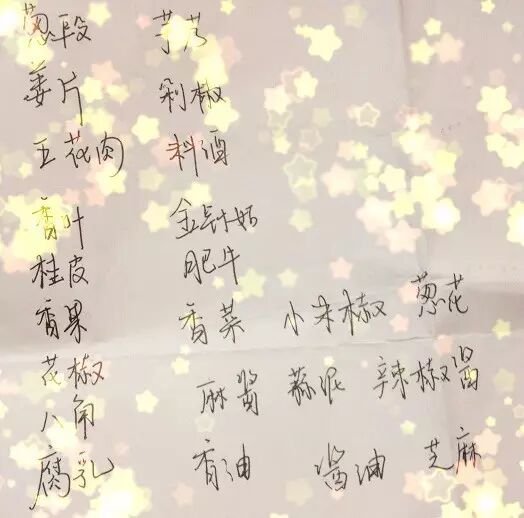 葱段 芋艿
姜片 剁椒
五花肉 料酒
香叶 金针菇
桂皮 肥牛
香果 香菜 小米椒 葱花
花椒 麻酱 蒜泥 辣椒酱
八角
腐乳 香油 酱油 芝麻